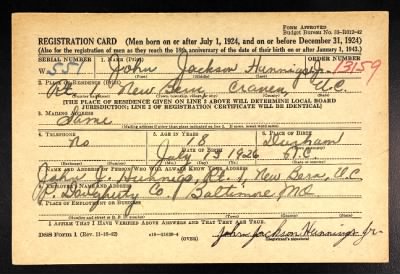 Form Approved
Budget Bureau No. 33-R012-42
REGISTRATION CARD (Men born on or after July 1, 1924, and on or before December 31, 1924)
(Also for the registration of men as they reach the 18th anniversary of the date of their birth on or after January 1, 1943.)
SERIAL NUMBER 1. NAME (Print) ORDER NUMBER
W-551 John Jackson Jr. 13159
(First) (Middle) (Last)
2. PLACE OF RESIDENCE (Print)
Rt. New Bern Craven N.C.
[THE PLACE OF RESIDENCE GIVEN ON LINE 2 ABOVE WILL DETERMINE LOCAL BOARD
JURISDICTION; LINE 2 OF REGISTRATION CERTIFICATE WILL BE IDENTICAL]
3. MAILING ADDRESS
Same
4. TELEPHONE 5. AGE IN YEARS 6. PLACE OF BIRTH
No 18 Durham
DATE OF BIRTH
July 1926 N.C.
7. NAME AND ADDRESS OF PERSON WHO WILL ALWAYS KNOW YOUR ADDRESS
John Rt. 1 New Bern, N.C.
8. EMPLOYER'S NAME AND ADDRESS
Co. Baltimore, Md.
9. PLACE OF EMPLOYMENT OR BUSINESS
I AFFIRM THAT I HAVE VERIFIED ABOVE ANSWERS AND THAT THEY ARE TRUE.
DSS Form 1 (Rev. 11-16-42) (OVER) John Jackson Jr.
(Registrant's signature)